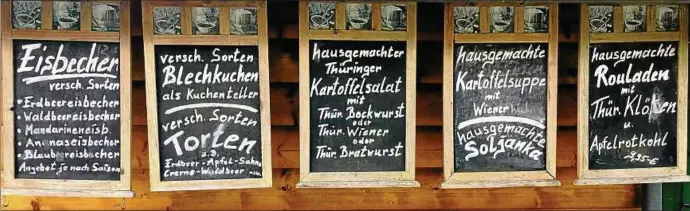 Eisbecher
versch. Sorten
- Erdbeereisbecher
- Waldbeereisbecher
- Mandarineneisb.
- Ananaseisbecher
- Blaubeereisbecher
Angebot je nach Saison
versch. Sorten
Blechkuchen
als Kuchenteller
versch. Sorten
Torten
z.B.
Erdbeer - Apfel - Sahne
Creme - Waldbeer
hausgemachter
Thüringer
Kartoffelsalat
mit
Thür. Bockwurst
oder
Thür. Wiener
oder
Thür. Bratwurst
hausgemachte
Kartoffelsuppe
mit
Wiener
hausgemachte
Soljanka
hausgemachte
Rouladen
mit
Thür. Klößen
u.
Apfelrotkohl